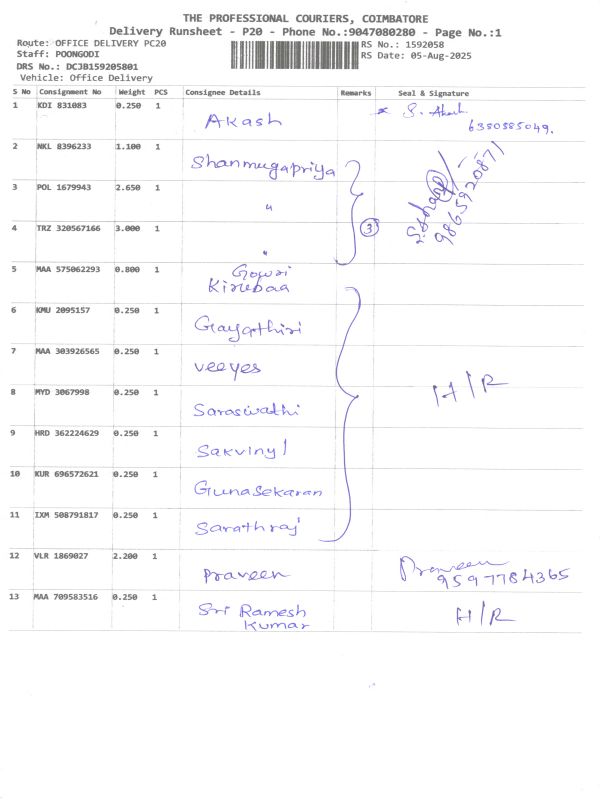 THE PROFESSIONAL COURIERS, COIMBATORE
Delivery Runsheet - P20 - Phone No.:9047080280 - Page No.:1
Route: OFFICE DELIVERY PC20 RS No.: 1592058
Staff: POONGODI RS Date: 05-Aug-2025
DRS No.: DCJB159205801
Vehicle: Office Delivery
S No Consignment No Weight PCS Consignee Details Remarks Seal & Signature
1 KDI 831083 0.250 1 Akash S. Akash
6380585049.
2 NKL 8396233 1.100 1 Shanmugapriya
9865920871
3 POL 1679943 2.650 1 "
4 TRZ 320567166 3.000 1 " 3
5 MAA 575062293 0.800 1 Gowri
Kirubaa
6 KMU 2095157 0.250 1 Gayathiri
7 MAA 303926565 0.250 1 veeyes
8 MYD 3067998 0.250 1 Saraswathi H/R
9 HRD 362224629 0.250 1 Sakvinyl
10 KUR 696572621 0.250 1 Gunasekaran
11 IXM 508791817 0.250 1 Sarathraj
12 VLR 1869027 2.200 1 praveen Praveen
9597784365
13 MAA 709583516 0.250 1 Sri Ramesh H/R
Kumar